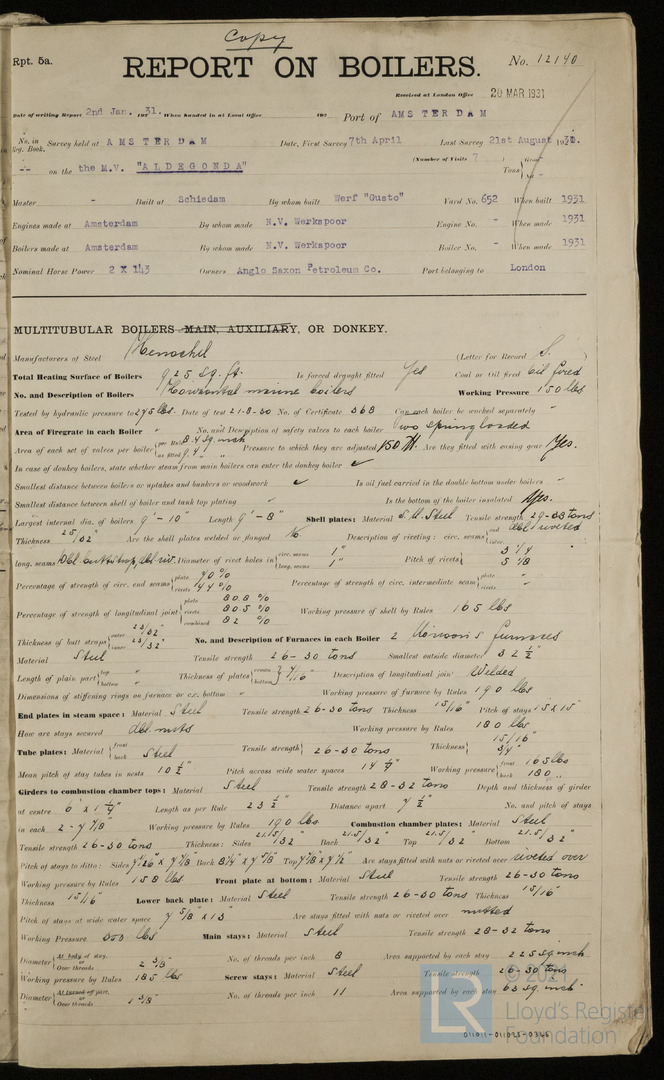 Copy
Rpt. 5a.
No. 12140
REPORT ON BOILERS.
Received at London Office 20 MAR 1931
Date of writing Report 2nd Jan. 31. 192 When handed in at Local Office 192 Port of AMSTERDAM
No. in Reg. Book. Survey held at AMSTERDAM Date, First Survey 7th April Last Survey 21st August 1930.
-- on the M.V. "ALDEGONDA" (Number of Visits 7 ) Tons { Gross Net -
Master - Built at Schiedam By whom built Werf "Gusto" Yard No. 652 When built 1931
Engines made at Amsterdam By whom made N.V. Werkspoor Engine No. - When made 1931
Boilers made at Amsterdam By whom made N.V. Werkspoor Boiler No. - When made 1931
Nominal Horse Power 2 X 143 Owners Anglo Saxon Petroleum Co. Port belonging to London
MULTITUBULAR BOILERS MAIN, AUXILIARY, OR DONKEY.
Manufacturers of Steel Henschel (Letter for Record S.)
Total Heating Surface of Boilers 925 sq. ft. Is forced draught fitted Yes Coal or Oil fired Oil fired
No. and Description of Boilers Horizontal marine boilers Working Pressure 150 lbs
Tested by hydraulic pressure to 275 lbs. Date of test 21.8.30 No. of Certificate 368 Can each boiler be worked separately "
Area of Firegrate in each Boiler " No. and Description of safety valves to each boiler Two spring loaded
Area of each set of valves per boiler { per Rule 8.4 sq. inch as fitted 9.4 " " Pressure to which they are adjusted 150 lbs. Are they fitted with easing gear Yes.
In case of donkey boilers, state whether steam from main boilers can enter the donkey boiler ✓
Smallest distance between boilers or uptakes and bunkers or woodwork ✓ Is oil fuel carried in the double bottom under boilers "
Smallest distance between shell of boiler and tank top plating " Is the bottom of the boiler insulated Yes.
Largest internal dia. of boilers 9' - 10" Length 9' - 8" Shell plates: Material S.M. Steel Tensile strength 29-33 tons
Thickness 25/32" Are the shell plates welded or flanged No Description of riveting: circ. seams { end Dbl riveted inter. "
long. seams Dbl butt strap, dbl riv. Diameter of rivet holes in { circ. seams 1" long. seams 1" Pitch of rivets { 3 1/4 5 1/8
Percentage of strength of circ. end seams { plate 70 % rivets 44 % Percentage of strength of circ. intermediate seam { plate rivets "
Percentage of strength of longitudinal joint { plate 80.8 % rivets 80.5 % combined 82 % Working pressure of shell by Rules 165 lbs
Thickness of butt straps { outer 23/32" inner 23/32" No. and Description of Furnaces in each Boiler 2 Morison's furnaces
Material Steel Tensile strength 26-30 tons Smallest outside diameter 32 1/2"
Length of plain part { top bottom " Thickness of plates { crown bottom } 7/16" Description of longitudinal joint Welded
Dimensions of stiffening rings on furnace or c.c. bottom " Working pressure of furnace by Rules 190 lbs
End plates in steam space: Material Steel Tensile strength 26-30 tons Thickness 15/16" Pitch of stays 15 x 15"
How are stays secured dbl. nuts Working pressure by Rules 180 lbs
Tube plates: Material { front back Steel Tensile strength { 26-30 tons Thickness { 15/16" 3/4"
Mean pitch of stay tubes in nests 10 1/2" Pitch across wide water spaces 14 1/4" Working pressure { front 165 lbs back 180 "
Girders to combustion chamber tops: Material Steel Tensile strength 28-32 tons Depth and thickness of girder
at centre 6" x 1 1/4" Length as per Rule 23 1/2" Distance apart 7 1/2" No. and pitch of stays
in each 2 - 7 7/8" Working pressure by Rules 190 lbs Combustion chamber plates: Material Steel
Tensile strength 26-30 tons Thickness: Sides 21.5/32" Back 21.5/32" Top 21.5/32" Bottom 21.5/32"
Pitch of stays to ditto: Sides Back Top 7 7/8 x 7 1/2" Are stays fitted with nuts or riveted over riveted over
Working pressure by Rules 158 lbs. Front plate at bottom: Material Steel Tensile strength 26-30 tons
Thickness 15/16" Lower back plate: Material Steel Tensile strength 26-30 tons Thickness 15/16"
Pitch of stays at wide water space 7 5/8" x 13" Are stays fitted with nuts or riveted over nutted
Working Pressure lbs Main stays: Material Steel Tensile strength 28-32 tons
Diameter { At body of stay, or Over threads 2 3/8" No. of threads per inch 8 Area supported by each stay 225 sq inch
Working pressure by Rules 185 lbs Screw stays: Material Steel Tensile strength 26-30 tons
Diameter { At turned off part, or Over threads 1 3/8" No. of threads per inch 11 Area supported by each stay 63 sq. inch
© 202
LR
Lloyd's Register
Foundation
011011-011023-0366